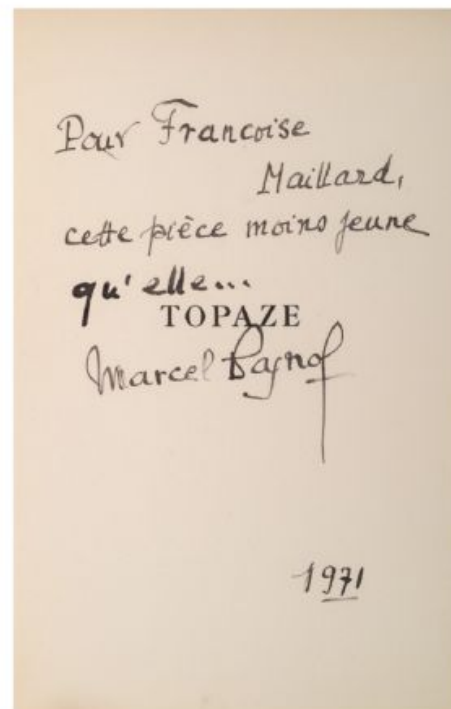 Pour Francoise
Maillard,
cette pièce moins jeune
qu'elle...
TOPAZE
Marcel Pagnol
1971